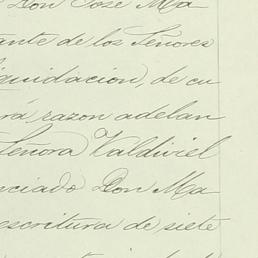 Don José Ma
ante de los Señores
quidacion, de cu
rá razon adelan
Señora Valdiviel
nciado Don Ma
escritura de siete